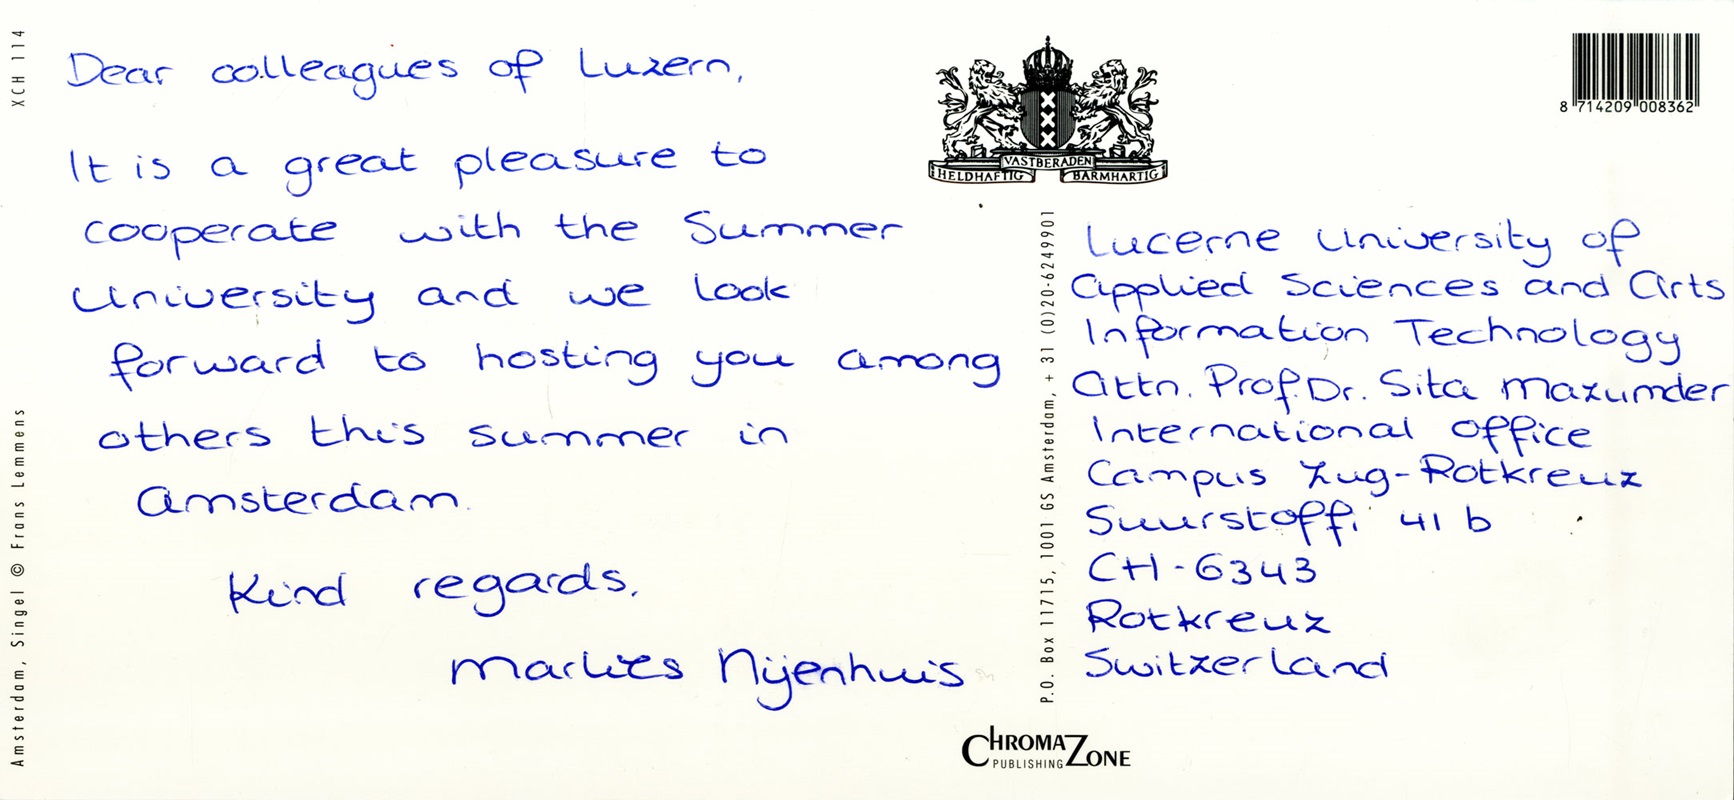 XCH 114
Amsterdam, Singel © Frans Lemmens
Dear colleagues of Luzern,
It is a great pleasure to
cooperate with the Summer
University and we look
forward to hosting you among
others this summer in
Amsterdam.
Kind regards,
Marlies Nijenhuis
VASTBERADEN
HELDHAFTIG BARMHARTIG
8 714209 008362
P.O. Box 11715, 1001 GS Amsterdam, + 31 (0)20-6249901
Lucerne University of
Applied Sciences and Arts
Information Technology
Attn. Prof. Dr. Sita Mazumder
International Office
Campus Zug-Rotkreuz
Suurstoffi 41 b
CH-6343
Rotkreuz
Switzerland
CHROMAZONE
PUBLISHING